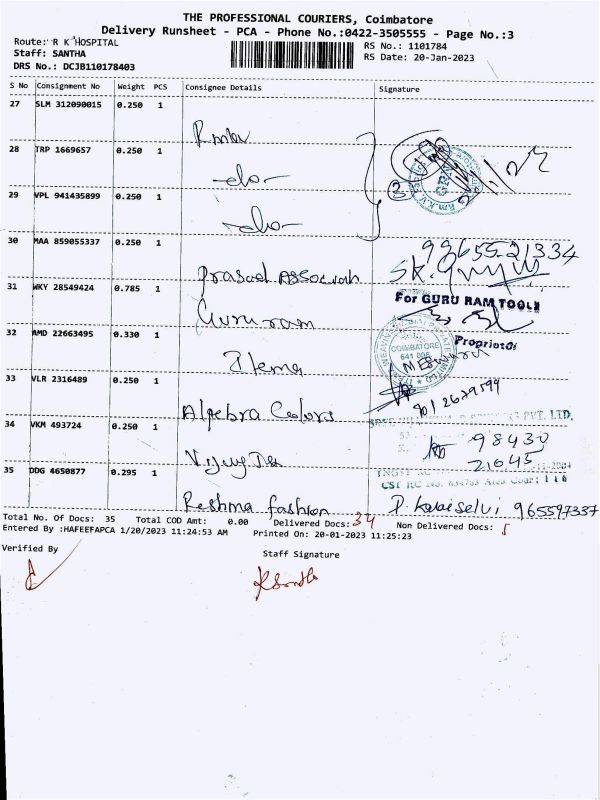 THE PROFESSIONAL COURIERS, Coimbatore
Delivery Runsheet - PCA - Phone No.:0422-3505555 - Page No.:3
Route: R K HOSPITAL
RS No.: 1101784
Staff: SANTHA
RS Date: 20-Jan-2023
DRS No.: DCJB110178403
S No Consignment No Weight PCS Consignee Details Signature
27 SLM 312090015 0.250 1
28 TRP 1669657 0.250 1 -do-
29 VPL 941435899 0.250 1 -do-
30 MAA 859055337 0.250 1 Prasad Associah
99655-21334
31 WKY 28549424 0.785 1 Guru ram
For GURU RAM TOOLS
Proprietor
32 AMD 22663495 0.330 1
COIMBATORE
641 006
33 VLR 2316489 0.250 1 Algebra Colors
PVT. LTD.
34 VKM 493724 0.250 1
98430
21645
35 DDG 4650877 0.295 1 Reshma fashion
P. Kalaiselvi 965597337
Total No. Of Docs: 35 Total COD Amt: 0.00 Delivered Docs: 34 Non Delivered Docs: 1
Entered By :HAFEEFAPCA 1/20/2023 11:24:53 AM Printed On: 20-01-2023 11:25:23
Verified By
Staff Signature
K Santha